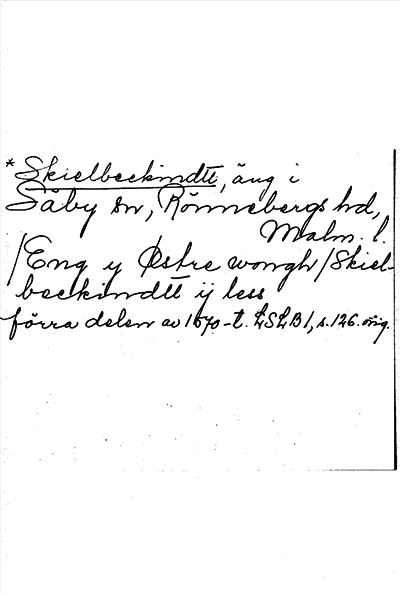 * Skielbeckindtt, äng i
Såby sn, Rönnebergs hd,
Malm. l.
/Eng y Østre wongh/Skiel-
beckindtt ij less
förra delen av 1570-t. LSLB1, s. 126. orig.